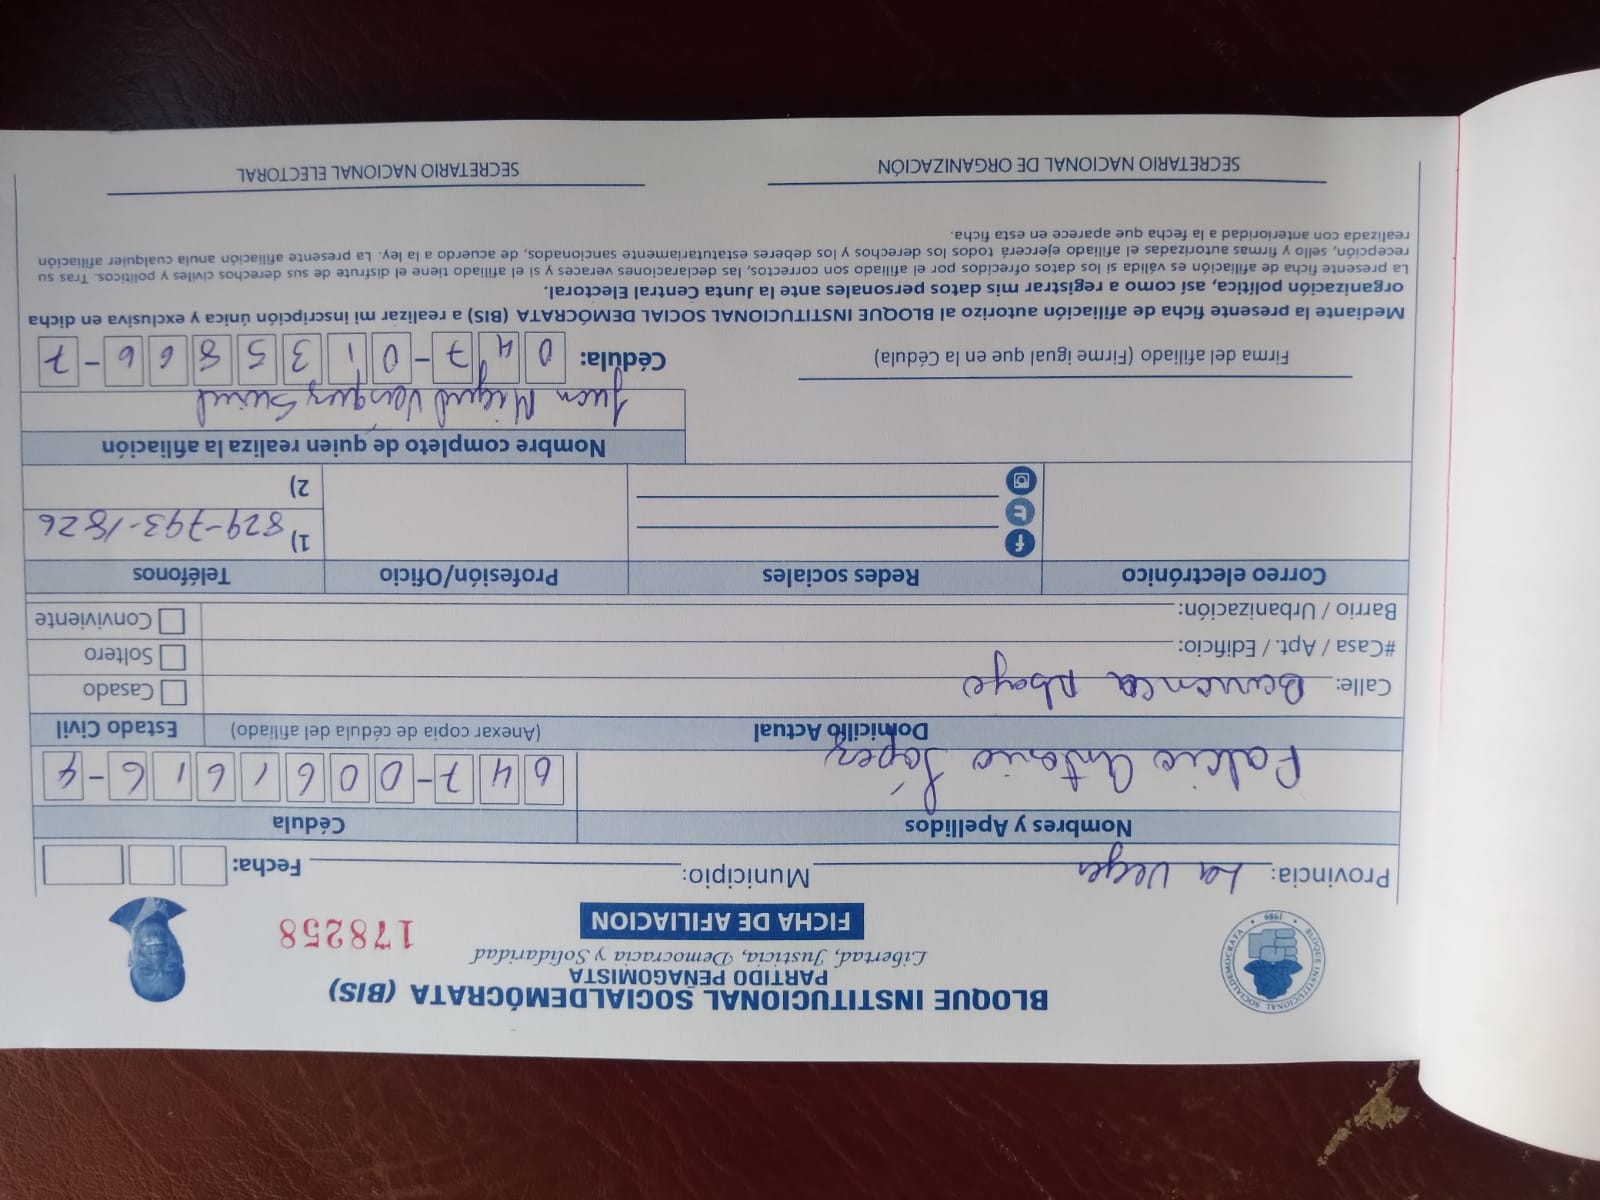 BLOQUE INSTITUCIONAL SOCIALDEMÓCRATA (BIS)
PARTIDO PEÑAGOMISTA
Libertad, Justicia, Democracia y Solidaridad
FICHA DE AFILIACION
178258
BLOQUE INSTITUCIONAL SOCIALDEMOCRATA • 1989 •
Provincia: La Vega Municipio: Fecha:
Nombres y Apellidos Cédula
Antonio López 047-0061616-4
Domicilio Actual (Anexar copia de cédula del afiliado) Estado Civil
Calle: Casado
#Casa / Apt. / Edificio: Soltero
Barrio / Urbanización: Conviviente
Correo electrónico Redes sociales Profesión/Oficio Teléfonos
1) 829-793-1826
2)
Nombre completo de quien realiza la afiliación
Juan Miguel Vasquez
Firma del afiliado (Firme igual que en la Cédula) Cédula: 047-0135866-7
Mediante la presente ficha de afiliación autorizo al BLOQUE INSTITUCIONAL SOCIAL DEMÓCRATA (BIS) a realizar mi inscripción única y exclusiva en dicha
organización política, así como a registrar mis datos personales ante la Junta Central Electoral.
La presente ficha de afiliación es válida si los datos ofrecidos por el afiliado son correctos, las declaraciones veraces y si el afiliado tiene el disfrute de sus derechos civiles y políticos. Tras su
recepción, sello y firmas autorizadas el afiliado ejercerá todos los derechos y los deberes estatutariamente sancionados, de acuerdo a la ley. La presente afiliación anula cualquier afiliación
realizada con anterioridad a la fecha que aparece en esta ficha.
SECRETARIO NACIONAL DE ORGANIZACIÓN SECRETARIO NACIONAL ELECTORAL